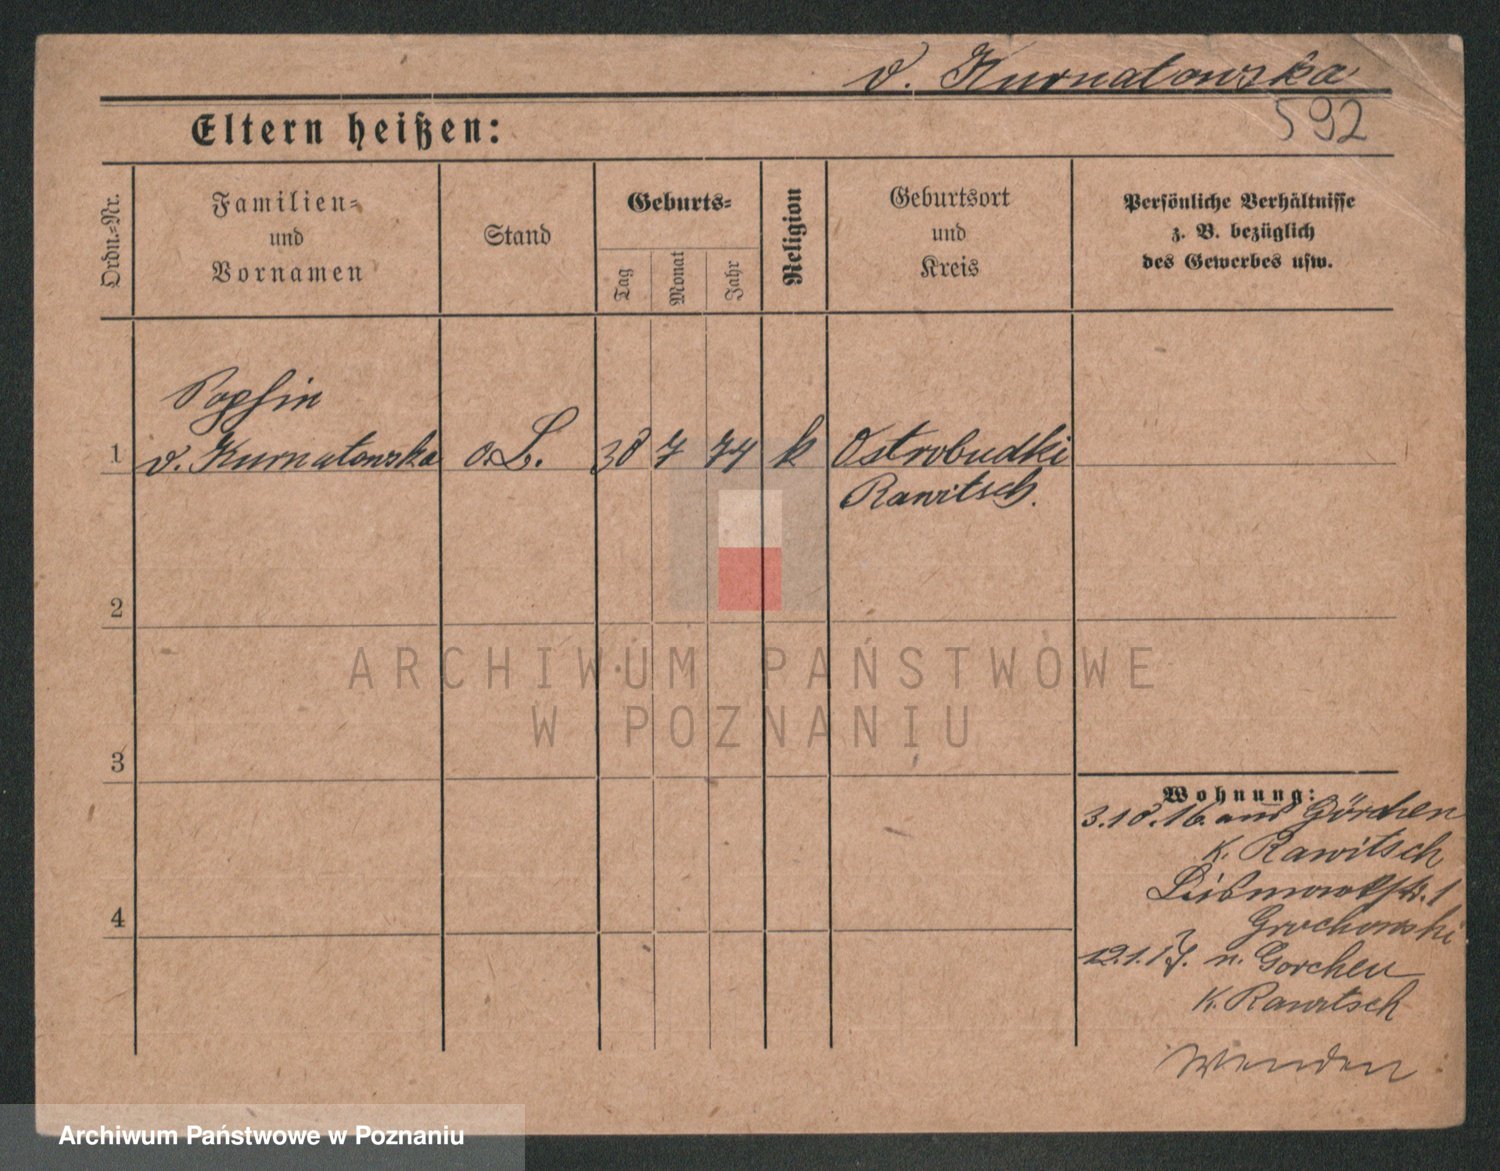 v. Kurnatowska
592
Eltern heißen:
Ordn.-Nr.
Familien-
und
Vornamen
Stand
Geburts-
Tag
Monat
Jahr
Religion
Geburtsort
und
Kreis
Persönliche Verhältnisse
z. B. bezüglich
des Gewerbes usw.
Sophie
1 v. Kurnatowska o. L. 30 7 74 k Ostrobudki
Rawitsch.
2
ARCHIWUM PAŃSTWOWE
W POZNANIU
3
Wohnung:
3.10.16. aus Görchen
K. Rawitsch
Bismarckstr. 1
Grochowski
12.1.17. n. Gorchen
K. Rawitsch
4
Wenden
Archiwum Państwowe w Poznaniu